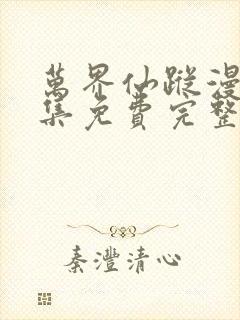 萬界仙蹤漫
集免費完整
秦灃清心